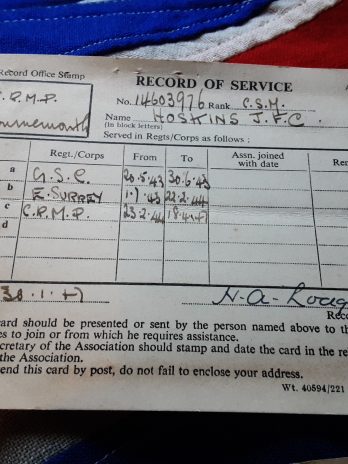 Record Office Stamp
RECORD OF SERVICE
C.R.M.P.
No. 14603976 Rank C.S.M.
Bournemouth
Name HOSKINS J.F.C.
(In block letters)
Served in Regts/Corps as follows :
Regt./Corps From To Assn. joined with date Re
a G.S.C. 20.5.43 30.6.43
b E. SURREY 1.7.43 22.2.44
c C.R.M.P. 23.2.44 18.4.47
d
30.1.47 H.A.
Reco
ard should be presented or sent by the person named above to th
es to join or from which he requires assistance.
cretary of the Association should stamp and date the card in the re
the Association.
end this card by post, do not fail to enclose your address.
Wt. 40594/221